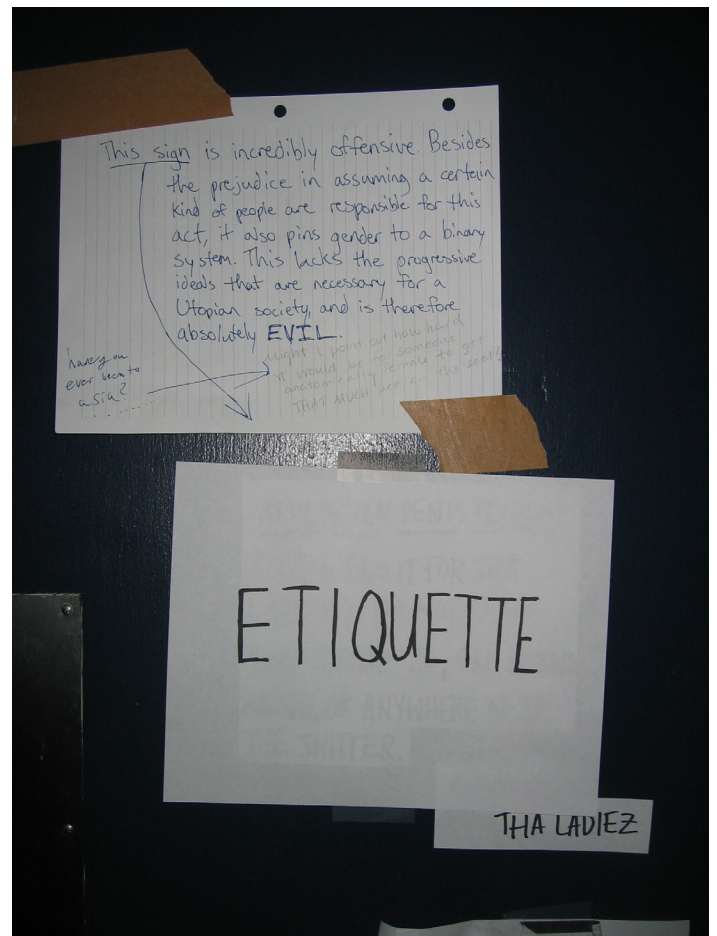 This sign is incredibly offensive. Besides
the prejudice in assuming a certain
kind of people are responsible for this
act, it also pins gender to a binary
system. This lacks the progressive
ideals that are necessary for a
Utopian society, and is therefore
absolutely EVIL.
Might I point out how hard
it would be for someone
anatomically female to get
THAT MUCH pee on the seat?
have you
ever been to
asia?
. . . . . . . . .
PENIS
IT FOR
OR ANYWHERE
SHITTER.
ETIQUETTE
THA LADIEZ